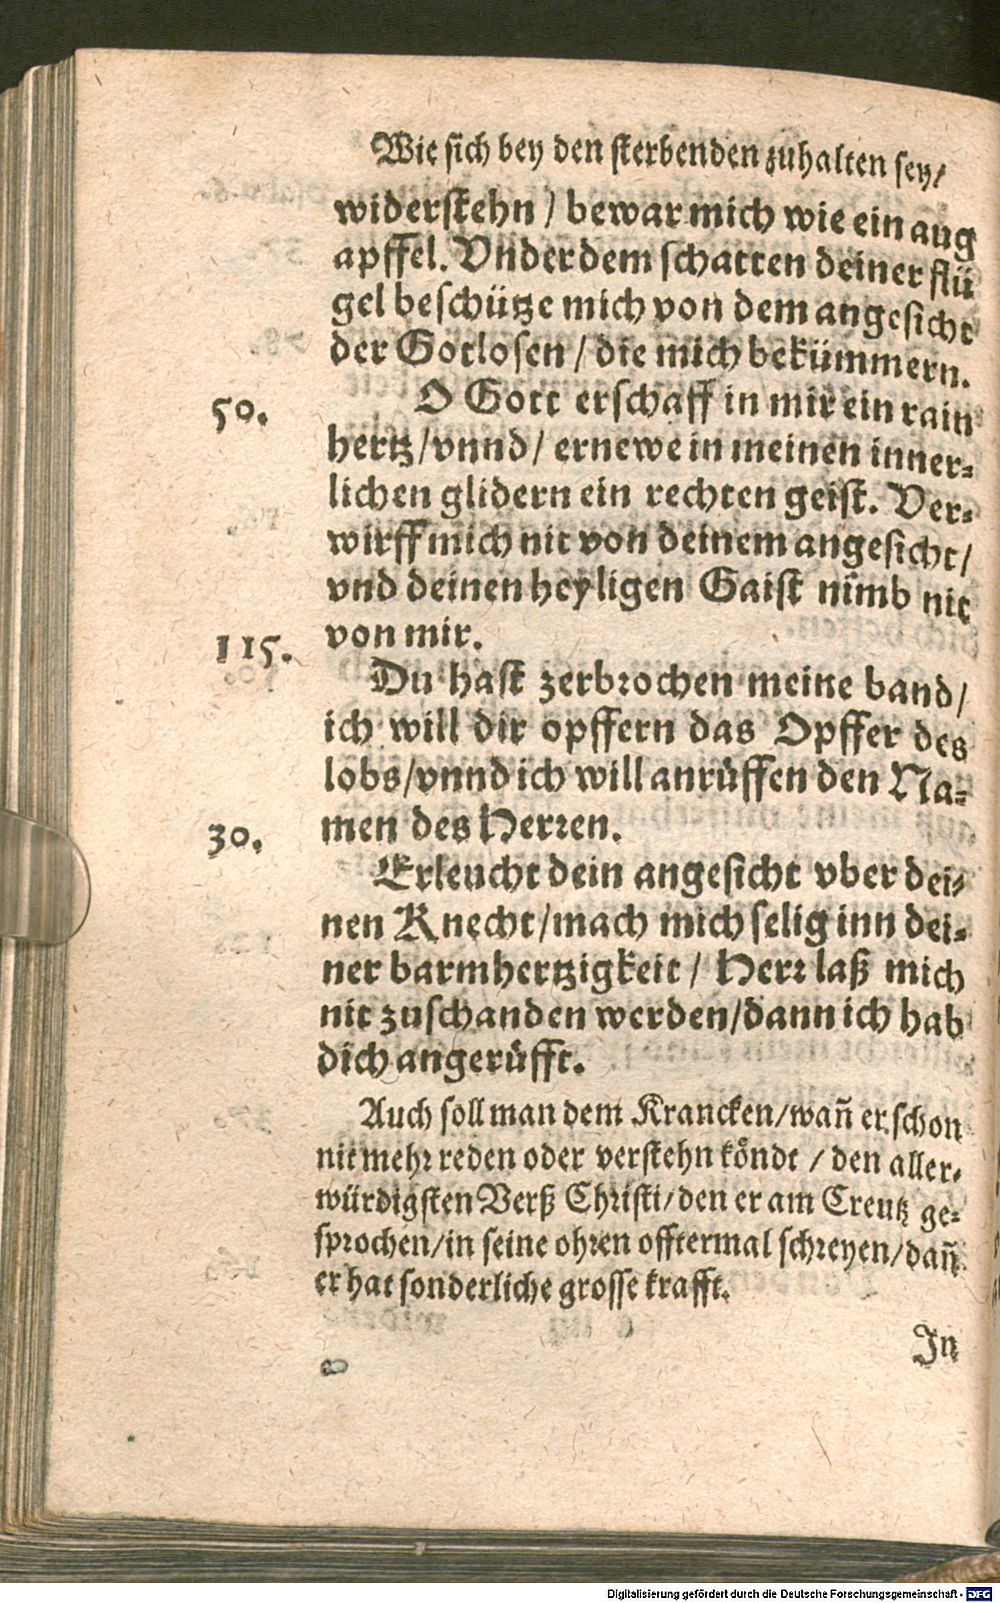 Wie sich bey den sterbenden zuhalten sey/
widerstehn / bewar mich wie ein aug
apffel. Vnder dem schatten deiner flü
gel beschütze mich von dem angesicht
der Gotlosen / die mich bekümmern.
50. O Gott erschaff in mir ein rain
hertz/vnnd/ ernewe in meinen inner⸗
lichen glidern ein rechten geist. Ver⸗
wirff mich nit von deinem angesicht/
vnd deinen heyligen Gaist nimb nit
115. von mir.
Du hast zerbrochen meine band/
ich will dir opffern das Opffer des
lobs/vnnd ich will anrüffen den Na⸗
30. men des Herren.
Erleucht dein angesicht vber dei⸗
nen Knecht/mach mich selig inn dei⸗
ner barmhertzigkeit / Herr laß mich
nit zuschanden werden/dann ich hab
dich angerüfft.
Auch soll man dem Krancken/wañ er schon
nit mehr reden oder verstehn köndt / den aller⸗
würdigsten Verß Christi/den er am Creutz ge⸗
sprochen/in seine ohren offtermal schreyen/dañ
er hat sonderliche grosse krafft.
In
Digitalisierung gefördert durch die Deutsche Forschungsgemeinschaft - DFG